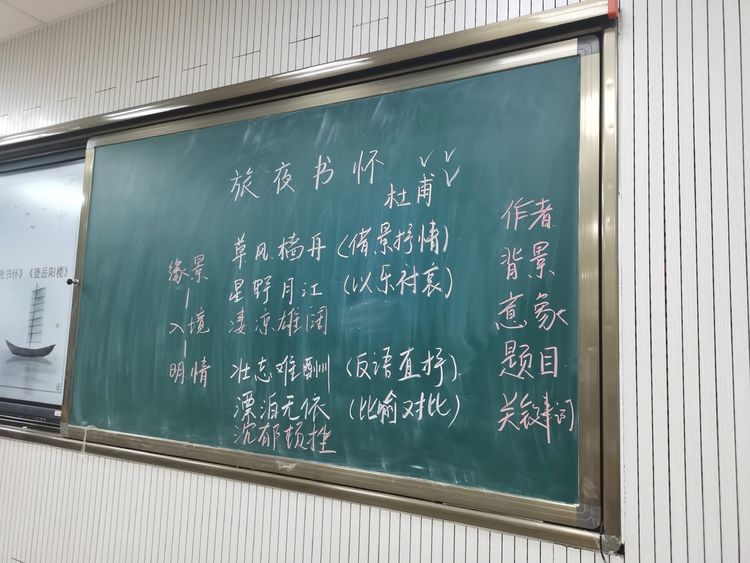 书怀》《登岳阳楼》
旅夜书怀
杜甫
缘景
入境
明情
草风樯舟(借景抒情)
星野月江(以乐衬哀)
凄凉雄阔
壮志难酬(反语直抒)
漂泊无依(比喻对比)
沉郁顿挫
作者
背景
意象
题目
关键词